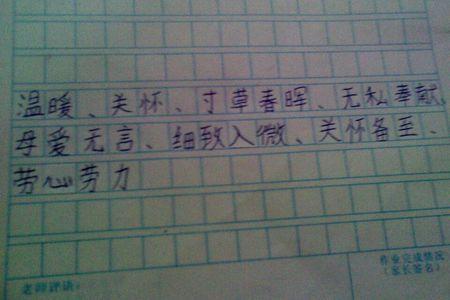 温暖、关怀、寸草春晖、无私奉献、
母爱无言、细致入微、关怀备至、
劳心劳力
作业完成情况
老师评语：
（家长签名）